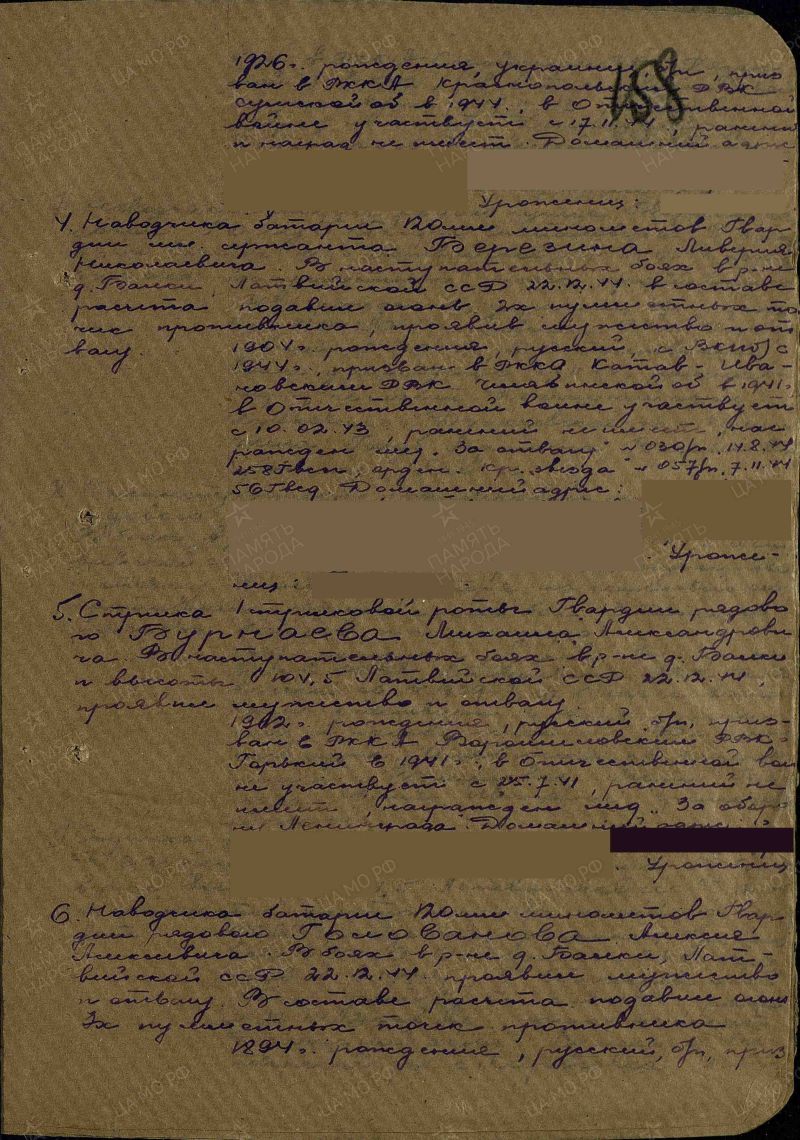 158
1926г. рождения, украинец, б/п, приз-
ван в РККА Краснопольским РВК
Сумской об в 1944г., в Отечественной
войне участвует с 17.11.44, ранений
и наград не имеет. Домашний адрес
Уроженец:
4. Наводчика батареи 120мм минометов Гвар-
дии мл. сержанта Березина Ливерия
Николаевича. В наступательных боях в р-не
д. Баики, Латвийской ССР 22.12.44. в составе
расчета подавил огонь 2х пулеметных то-
чек противника, проявив мужество и от-
вагу.
1904г. рождения, русский, ВКП(б) с
1944г., призван в РККА Катав-Ива-
новским РВК Челябинской об в 1941г.
в Отечественной войне участвует
с 10.02.43, ранений не имеет, наг-
ражден мед. "За отвагу" N 030/н 14.8.44
258 Гвсп, орден. "Кр. звезда" N 057/н 7.11.44
56 Гвсд. Домашний адрес:
Уроже-
нец:
5. Стрелка 1 стрелковой роты Гвардии рядово-
го Бурнаева Михаила Александрови-
ча. В наступательных боях в р-не д. Баики
и высоты 104,5 Латвийской ССР 22.12.44,
проявил мужество и отвагу.
1902г. рождения, русский, б/п, приз-
ван в РККА Ворошиловским РВК
Горький в 1941г., в Отечественной вой-
не участвует с 25.7.41, ранений не
имеет, награжден мед. "За оборо-
ну Ленинграда". Домашний адрес
Уроженец
6. Наводчика батареи 120мм минометов Гвар-
дии рядового Голованова Алексея
Алексеевича. В боях в р-не д. Баики, Лат-
вийской ССР 22.12.44. проявил мужество
и отвагу. В составе расчета подавил огонь
3х пулеметных точек противника
1894г. рождения, русский, б/п, приз